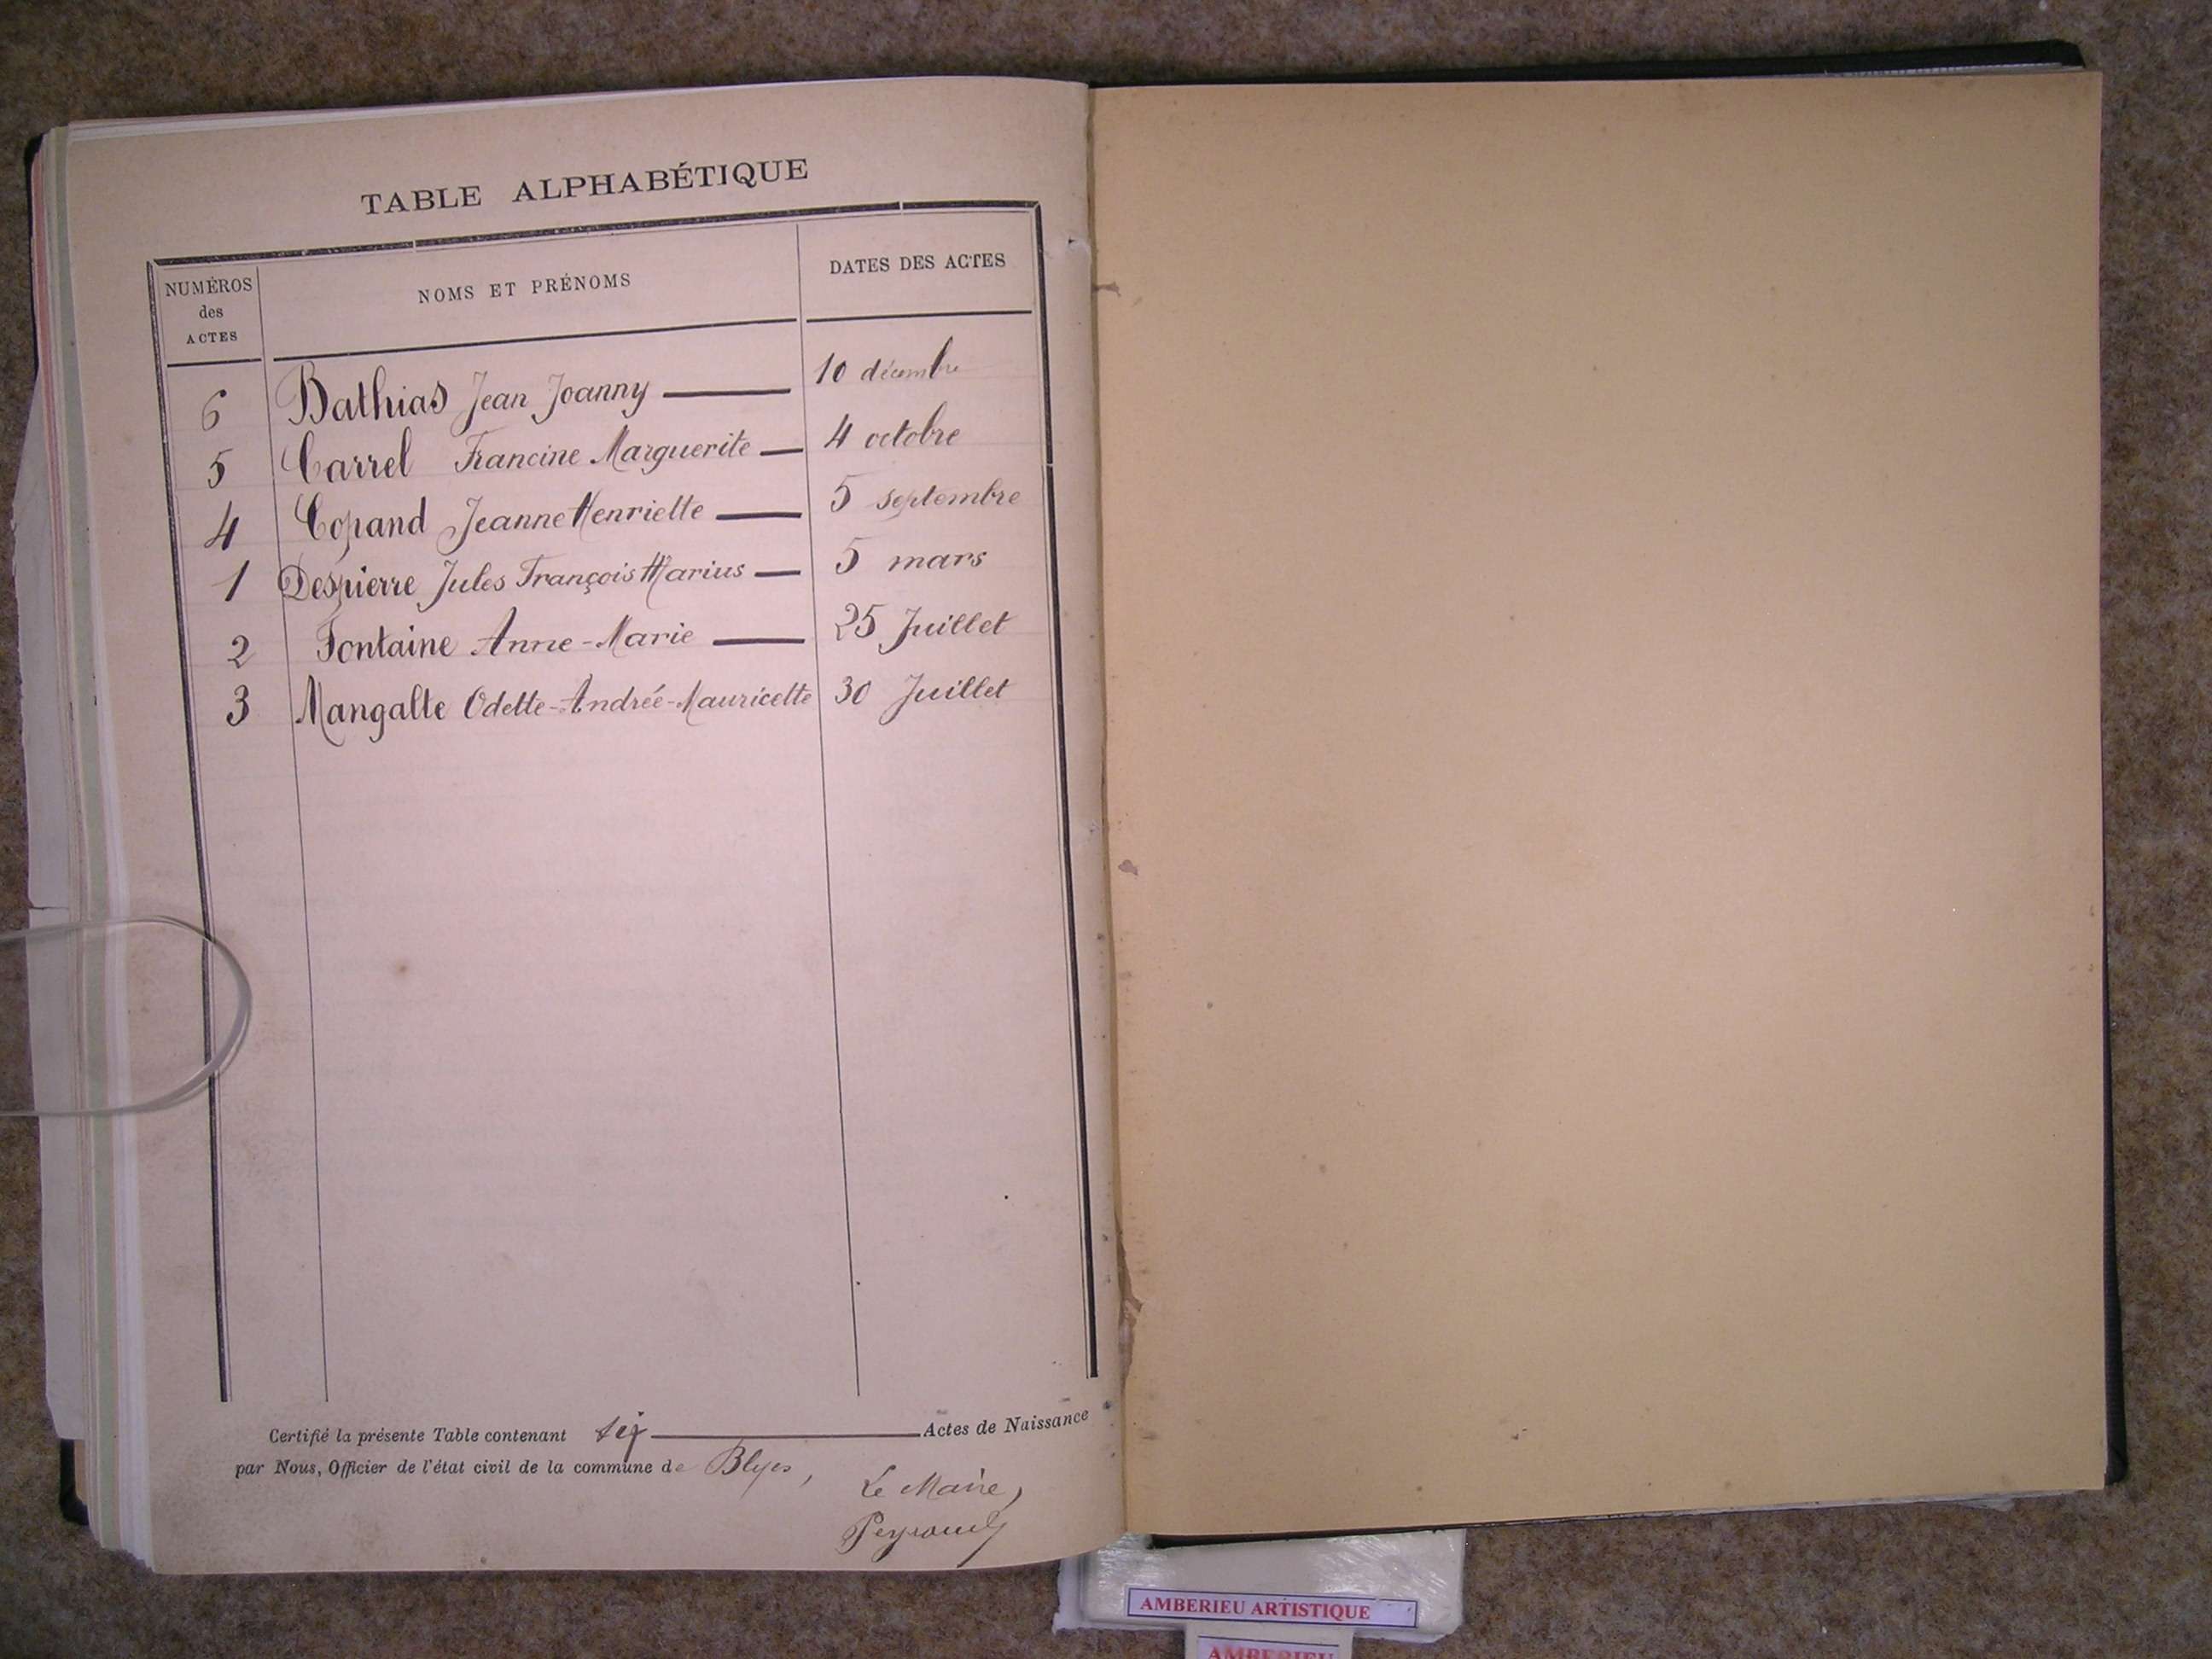 TABLE ALPHABÉTIQUE
NUMÉROS des ACTES NOMS ET PRÉNOMS DATES DES ACTES
6 Bathias Jean Joanny 10 décembre
5 Carrel Francine Marguerite 4 octobre
4 Copand Jeanne Henriette 5 septembre
1 Despierre Jules François Marius 5 mars
2 Fontaine Anne-Marie 25 Juillet
3 Mangatte Odette-Andrée-Mauricette 30 Juillet
Certifié la présente Table contenant six Actes de Naissance
par Nous, Officier de l'état civil de la commune de Blyes,
Le Maire,
AMBERIEU ARTISTIQUE
AMBERIEU